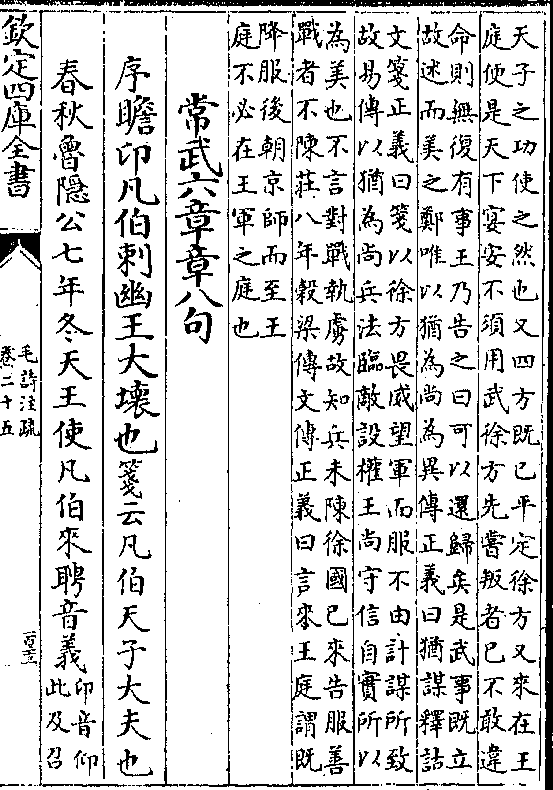 天子之功使之然也又四方既已平定徐方又來在王
庭便是天下宴安不須用武徐方先嘗叛者已不敢違
命則無復有事王乃告之曰可以還歸矣是武事既立
故述而美之鄭唯以猶為尚為異傳正義曰猶謀釋詁
文箋正義曰箋以徐方畏威望軍而服不由計謀所致
故易傳以猶為尚兵法臨敵設權王尚守信自實所以
為美也不言對戰執虜故知兵未陳徐國已來告服善
戰者不陳莊八年穀梁傳文傳正義曰言來王庭謂既
降服後朝京師而至王
庭不必在王軍之庭也
常武六章章八句
序瞻卬凡伯刺幽王大壞也箋云凡伯天子大夫也
春秋魯隱公七年冬天王使凡伯來聘音義卬音仰
此及召
欽定四庫全書
毛詩注疏
卷二十五